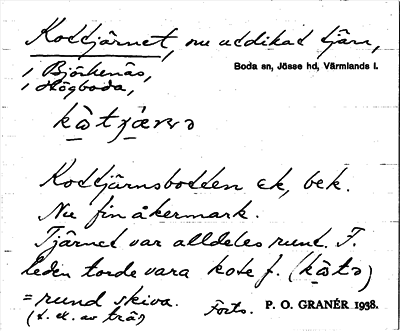 Kottjärnet, nu utdikad tjärn,
Boda sn, Jösse hd, Värmlands l.
1 Björkenäs,
1 Högboda,
Kottjärnsbotten ek, bek.
Nu fin åkermark.
Tjärnet var alldeles runt. F.
leden torde vara kote f. (kåtə)
= rund skiva.
(t. ex. av trä)
Forts. P. O. GRANÉR 1938.